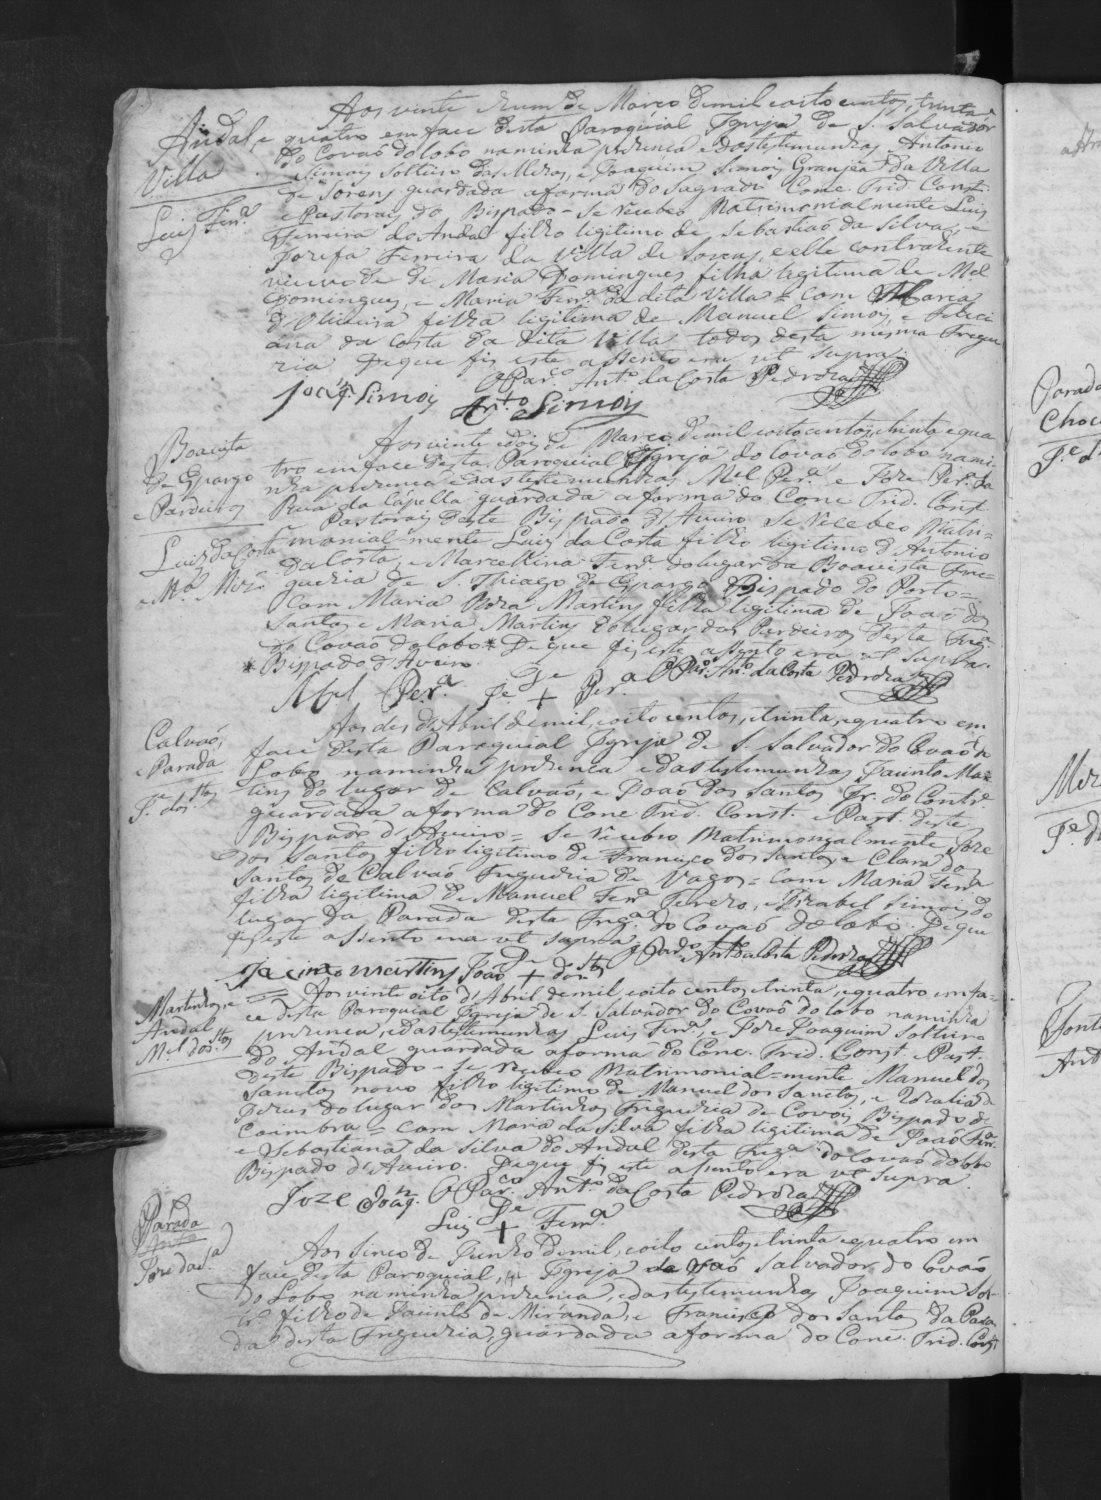 Andal, e
Villa
Luis Ferr.ª
Aos vinte e hum de Março de mil e oito centos, trinta
e quatro em face desta Paroquial Igreja de S. Salvador
do Covaõ do lobo na minha prezença e das testemunhas Antonio
Simoiz Solteiro das Mezas, e Joaquim Simoiz Granjea da Villa
de Sorens guardada a forma do Sagrado Conc. Trid. Const.
e Pastorais do Bispado - se recebeo Matrimonialmente Luis
Ferreira do Andal filho legitimo de Sebastiaõ da Silva, e
Jozefa Ferreira da Villa de Sorens, e elle contraente
viuvo de de Maria Domingues filha legitima de M.el
Domingues, e Maria Ferr.ª da dita Villa = com Maria
d'Oliveira filha legitima de Manuel Simois, e Felici
ana da Costa da dita Villa todos desta mesma Fregue
zia De que fis este assento era ut supra.
O Par.º Ant.º da Costa Pedroza
Joaq. Simoiz
Ant.º Simoiz
Boavista
de Espargo
e Pardeiros
Luis da Costa
e M.ª Roza
Aos vinte e dois de Março de mil e oito centos, trinta e qua
tro em face desta Paroquial Igreja do Covaõ do lobo na mi
nha prezença e das testemunhas M.el Per.ª e Joze Per.ª da
Rua da Capella guardada a forma do Conc. Trid. Const.
e Pastorais deste Bispado d'Aveiro se recebeo Matri=
monial-mente Luis da Costa filho legitimo d'Antonio
da Costa, e Marcellina Ferr.ª do lugar da Boavista Fre=
guezia de S. Thiago de Espargo Bispado do Porto =
com Maria Roza Martins filha legitima de Joaõ dos
Santos e Maria Martins do lugar dos Perdeiros desta Freg.ª
do Covaõ do lobo * De que fis este assento era ut supra.
* Bispado d'Aveiro.
O Par.º Ant.º da Costa Pedroza
M.el Per.ª
De
Je + Per.ª
Calvaõ,
e Parada
J.e dos S.tos
Aos des d'Abril de mil, e oito centos, e trinta, e quatro em
face desta Paroquial Igreja de S. Salvador do Covaõ do
Lobo na minha prezença e das testemunhas Jacinto Mar
tins do lugar de Calvaõ, e Joaõ dos Santos Ir. do Contr.e
guardada a forma do Conc. Trid. Const. e Past. deste
Bispado d'Aveiro = se recebeo Matrimonialmente Joze
dos Santos filho legitimo de Francisco dos Santos, e Clara dos
Santos de Calvaõ Freguezia de Vagos = com Maria Ferr.ª
filha legitima de Manuel Ferr.ª Ferero, e Izabel Simois do
lugar da Parada desta Freg.ª do Covaõ do lobo. De que
fis este assento era ut supra.
O Par.º Ant.º da Costa Pedroza
Jacinto martins
De
Joaõ + dos S.tos
Martinhos, e
Andal
M.el dos S.tos
Aos vinte oito d'Abril de mil, e oito centos, e trinta, e quatro em fa-
ce desta Paroquial Igreja de S. Salvador do Covaõ do lobo na minha
prezença, e das testemunhas Luis Ferr.ª, e Joze Joaquim Solteiro
do Andal guardada a forma do Conc. Trid. Const. e Past.
deste Bispado - se recebeo Matrimonial-mente Manuel dos
Sanctos novo filho legitimo de Manuel dos Sanctos, e Rozalia de
Jezus do lugar dos Martinhos Freguezia de Covois Bispado de
Coimbra = com Maria da Silva filha legitima de Joaõ Ferr.ª
e Sebastiana da Silva do Andal desta Freg.ª do Covaõ do lobo
Bispado d'Aveiro. De que fis este assento era ut supra.
O Par.co Ant.º da Costa Pedroza
Joze Joaq.m
De
Luis + Ferr.ª
Parada
Joze da S.ª
Aos sinco de Junho de mil, e oito centos, e trinta e quatro em
face desta Paroquial, Igreja Salvador do Covaõ
do Lobo na minha prezença, e das testemunhas Joaquim Sol-
tr.º filho de Jacinto de Miranda, e Francisco dos Santos da Para
da desta Freguezia, guardada a forma do Conc. Trid. Const
Parada
Choc
J.e d
J.e d
Font
Ant